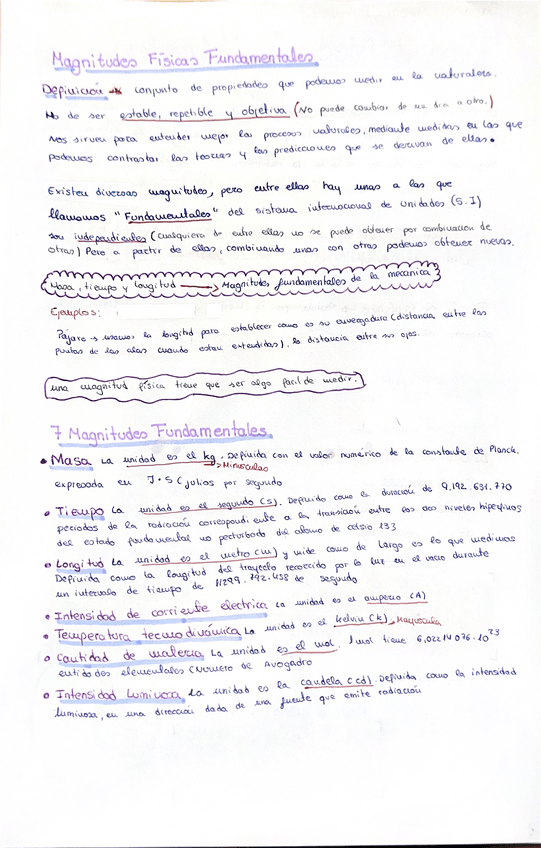 Magnitudes Físicas Fundamentales.
Definición → conjunto de propiedades que podemos medir en la naturaleza.
Ha de ser estable, repetible y objetiva (No puede cambiar de un dia a otro.)
Nos sirven para entender mejor los procesos naturales, mediante medidas en las que
podemos contrastar las teorias y las predicciones que se derivan de ellas.
Existen diversas magnitudes, pero entre ellas hay unas a las que
llamamos "Fundamentales" del sistema internacional de unidades (S.I)
son independientes (cualquiera de entre ellas no se puede obtener por combinación de
otras) Pero a partir de ellas, combinando unas con otras podemos obtener nuevas.
Masa, tiempo y longitud → Magnitudes fundamentales de la mecánica
Ejemplos:
Pájaro → usamos la longitud para establecer como es su envergadura (distancia entre las
puntas de las alas cuando estan extendidas), la distancia entre sus ojos.
una magnitud física tiene que ser algo facil de medir.
7 Magnitudes Fundamentales.
• Masa La unidad es el kg. Definida con el valor numérico de la constante de Planck,
→ Minusculas
expresada en J·S (julios por segundo
• Tiempo La unidad es el segundo (s). Definido como la duración de 9.192.631.770
periodos de la radiación correspondiente a la transición entre los dos niveles hiperfinos
del estado fundamental no perturbado del atomo de celsio 133
• Longitud La unidad es el metro (m) y mide como de largo es lo que medimos
Definida como la longitud del trayecto recorrido por la luz en el vacio durante
un intervalo de tiempo de 1/299.792.458 de segundo
• Intensidad de corriente electrica La unidad es el amperio (A)
• Temperatura termodinámica La unidad es el kelvin (k) → Mayuscula
• Cantidad de materia La unidad es el mol. 1 mol tiene 6,02214076·10²³
entidades elementales (Numero de Avogadro
• Intensidad Luminosa La unidad es la candela (cd). Definida como la intensidad
luminosa, en una dirección dada de una fuente que emite radiación